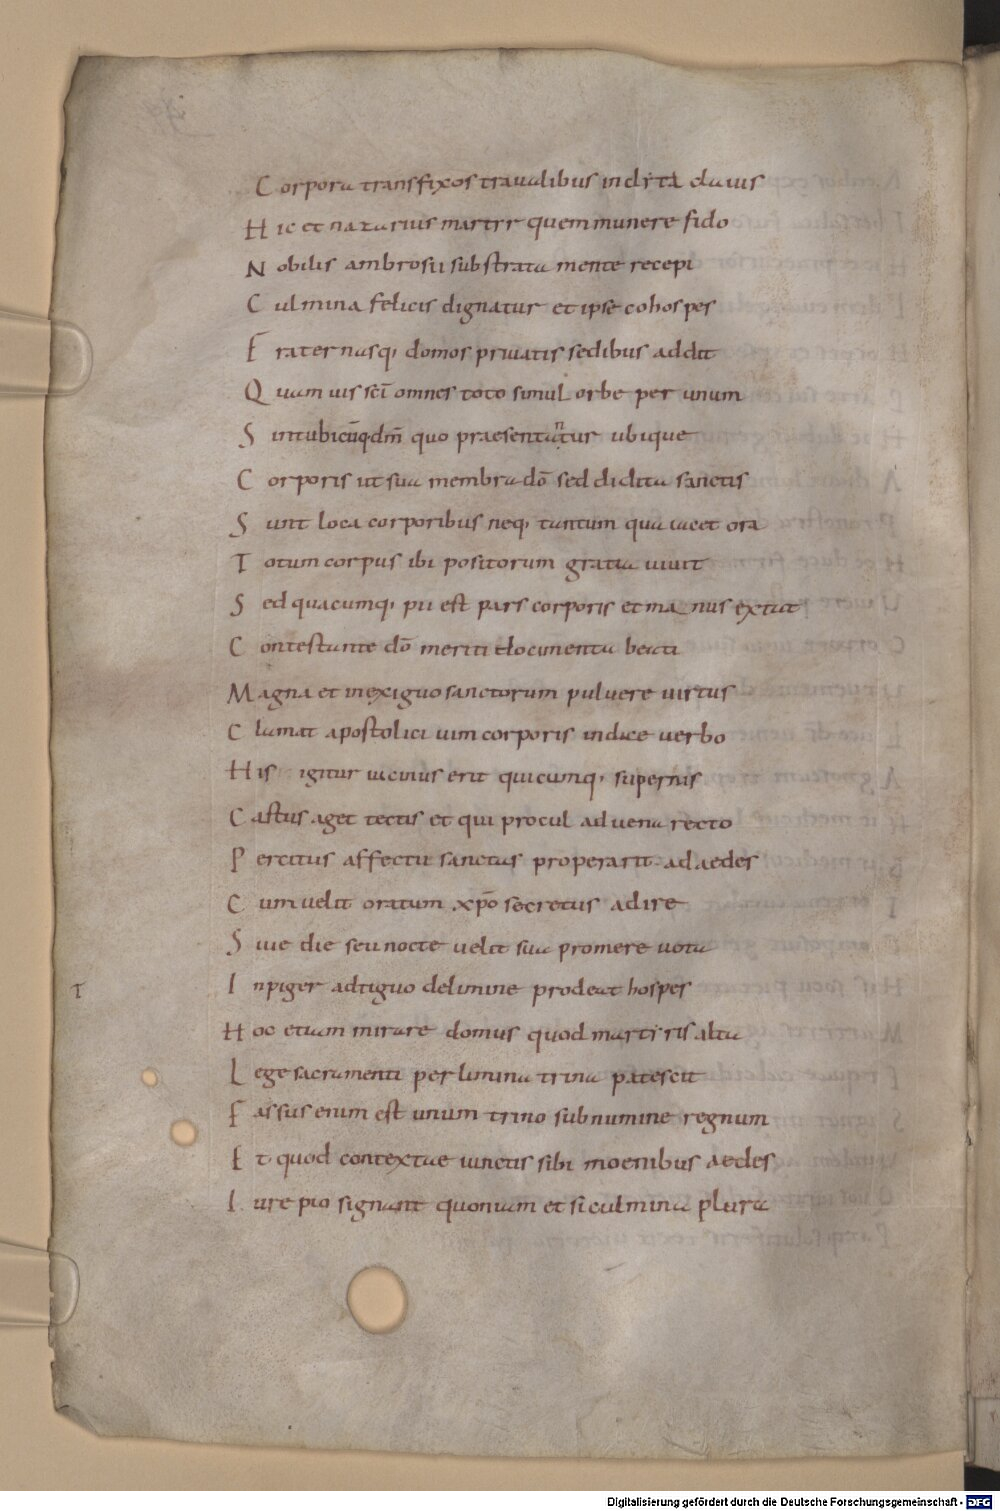 Corpora transfixos trabalibus inclyta clauis
Hic et nazarius martyr quem munere fido
Nobilis ambrosii substrata mente recepi
Culmina felicis dignatur et ipse cohospes
Fraternasq; domos priuatis sedibus addit
Quam uis scī omnes toto simul orbe per unum
Sint ubicūq dm̄ quo praesentantur ubique
Corporis ut sua membra dō sed didita sanctis
Sunt loca corporibus neq; tantum qua iacet ora
Totum corpus ibi positorum gratia uiuit
Sed quacumq; pii est pars corporis et manus extat
Contestante dō meriti documenta beati
Magna et in exiguo sanctorum puluere uirtus
Clamat apostolici uim corporis indice uerbo
His igitur uicinus erit quicumq; supernis
Castus aget tectis et qui procul aduena recto
Percitus affectu sanctas properarit ad aedes
Cum uelit oratum xp̄o secretus adire
Siue die seu nocte uelit sua promere uota
Inpiger adtiguo de limine prodeat hospes
Hoc etiam mirare domus quod martyris alta
Lege sacramenti per limina trina patescit
Fassus enim est unum trino sub numine regnum
Et quod contextae iunctis sibi moenibus aedes
Iure pio signant quoniam et si culmina plura
τ
Digitalisierung gefördert durch die Deutsche Forschungsgemeinschaft - DFG